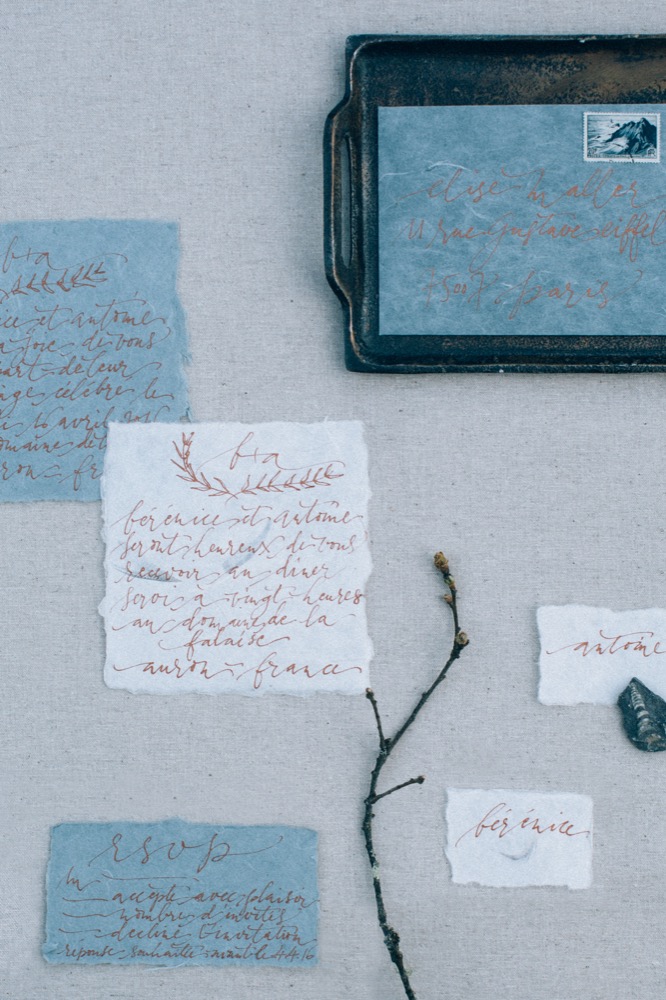 elise waller
11 rue gustave eiffel
75007 paris
b+a
ice et antoine
a joie de vous
part de leur
age célébré le
16 avril
omaine de
b+a
bérénice et antoine
seront heureux de vous
recevoir au dîner
servi à vingt heures
au domaine de la
falaise
auron france
antoine
bérénice
rsvp
m
accepte avec plaisir
nombre d'invités
décline l'invitation
réponse souhaitée avant le 4.4.16